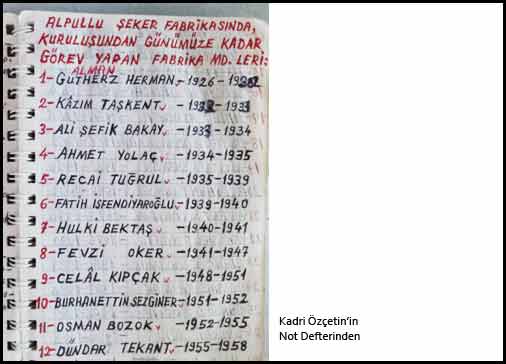 ALPULLU ŞEKER FABRİKASINDA,
KURULUŞUNDAN GÜNÜMÜZE KADAR
GÖREV YAPAN FABRİKA MD. LERİ:
ALMAN
1- GUTHERZ HERMAN - 1926 -
2- KÂZIM TAŞKENT
3- ALİ ŞEFİK BAKAY - 1933 - 1934
4- AHMET YOLAÇ - 1934 - 1935
5- RECAİ TUĞRUL - 1935 - 1939
6- FATİH İSFENDİYAROĞLU - 1939 - 1940
7- HULKİ BEKTAŞ - 1940 - 1941
8- FEVZİ OKER - 1941 - 1947
9- CELÂL KIPÇAK - 1948 - 1951
10- BURHANETTİN SEZGİNER - 1951 - 1952
11- OSMAN BOZOK - 1952 - 1955
12- DÜNDAR TEKANT - 1955 - 1958
Kadri Özçetin'in
Not Defterinden